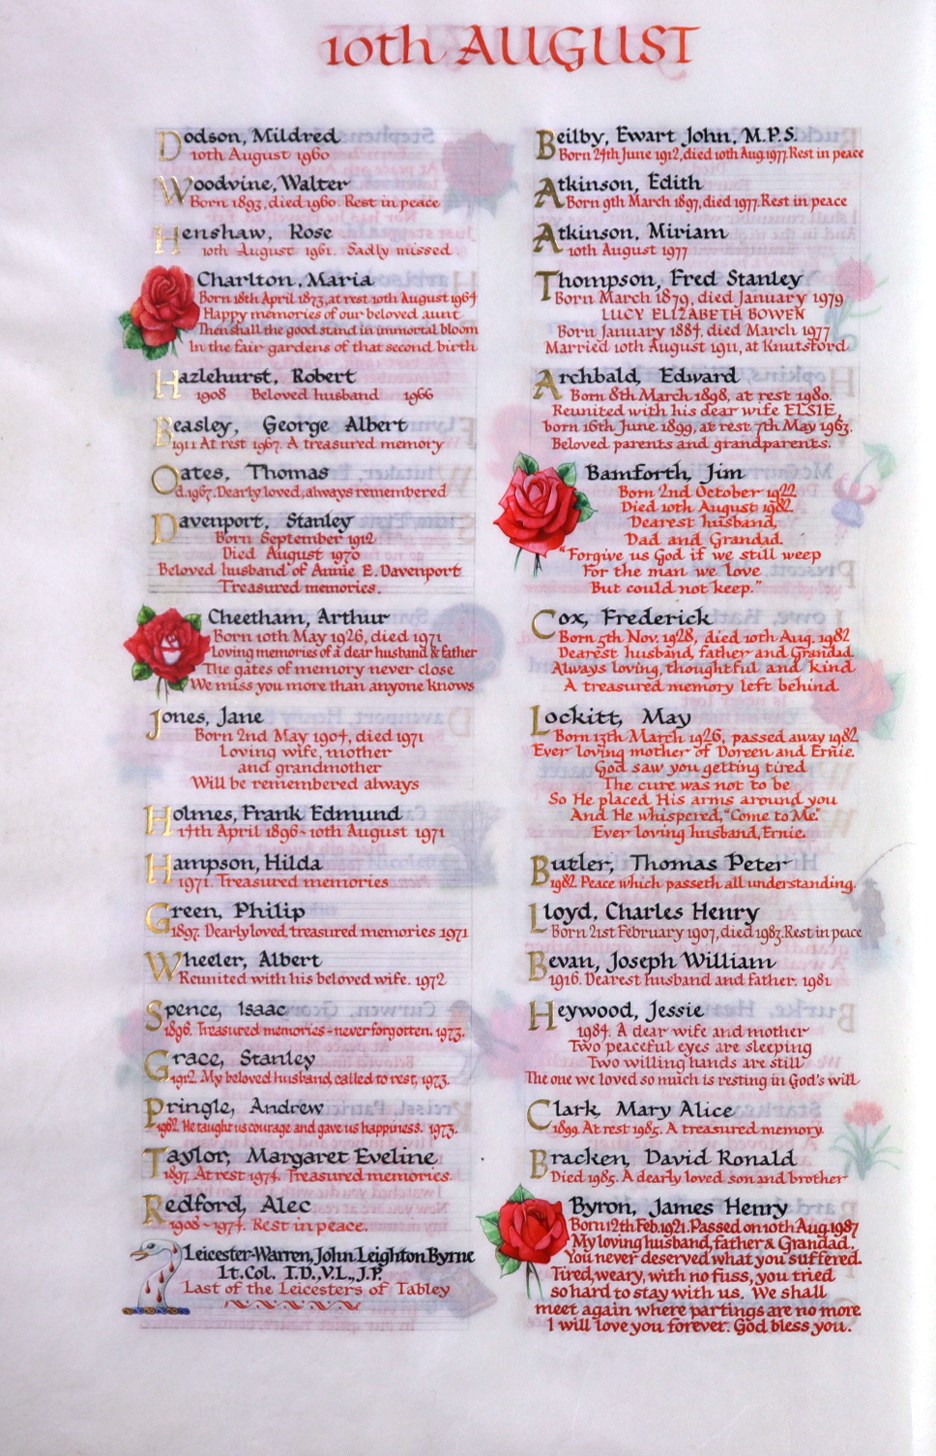 10th AUGUST
Dodson, Mildred
10th August 1960
Woodvine, Walter
Born 1893, died 1960. Rest in peace
Henshaw, Rose
10th August 1961. Sadly missed.
Charlton, Maria
Born 18th April 1873, at rest 10th August 1964
Happy memories of our beloved aunt
Then shall the good stand in immortal bloom
In the fair gardens of that second birth
Hazlehurst, Robert
1908 Beloved husband 1966
Beasley, George Albert
1911 At rest 1967. A treasured memory
Oates, Thomas
d. 1967. Dearly loved, always remembered
Davenport, Stanley
Born September 1912
Died August 1970
Beloved husband of Annie E. Davenport
Treasured memories.
Cheetham, Arthur
Born 10th May 1926, died 1971
Loving memories of a dear husband & father
The gates of memory never close
We miss you more than anyone knows
Jones, Jane
Born 2nd May 1904, died 1971
Loving wife, mother
and grandmother
Will be remembered always
Holmes, Frank Edmund
17th April 1896 ~ 10th August 1971
Hampson, Hilda
1971. Treasured memories
Green, Philip
1897. Dearly loved, treasured memories 1971
Wheeler, Albert
Reunited with his beloved wife. 1972
Spence, Isaac
1896. Treasured memories - never forgotten. 1973.
Grace, Stanley
1912. My beloved husband, called to rest, 1973.
Pringle, Andrew
He taught us courage and gave us happiness. 1973.
Taylor, Margaret Eveline
1897. At rest 1974. Treasured memories.
Redford, Alec
1908 ~ 1974. Rest in peace.
Leicester-Warren, John Leighton Byrne
Lt. Col. T.D., V.L., J.P.
Last of the Leicesters of Tabley
Beilby, Ewart John, M.P.S.
Born 24th June 1912, died 10th Aug. 1977. Rest in peace
Atkinson, Edith
Born 9th March 1897, died 1977. Rest in peace
Atkinson, Miriam
10th August 1977
Thompson, Fred Stanley
Born March 1879, died January 1979
LUCY ELIZABETH BOWEN
Born January 1884, died March 1977
Married 10th August 1911, at Knutsford
Archbald, Edward
Born 8th March 1898, at rest 1980.
Reunited with his dear wife ELSIE,
born 16th June 1899, at rest 7th May 1963.
Beloved parents and grandparents.
Bamforth, Jim
Born 2nd October 1922
Died 10th August 1982.
Dearest husband,
Dad and Grandad.
"Forgive us God if we still weep
For the man we love
But could not keep."
Cox, Frederick
Born 5th Nov. 1928, died 10th Aug. 1982
Dearest husband, father and Grandad
Always loving, thoughtful and kind
A treasured memory left behind
Lockitt, May
Born 13th March 1926, passed away 1982
Ever loving mother of Doreen and Ernie.
God saw you getting tired
The cure was not to be
So He placed His arms around you
And He whispered, "Come to Me."
Ever loving husband, Ernie.
Butler, Thomas Peter
1982. Peace which passeth all understanding.
Lloyd, Charles Henry
Born 21st February 1907, died 1983. Rest in peace
Bevan, Joseph William
1916. Dearest husband and father. 1981
Heywood, Jessie
1984. A dear wife and mother
Two peaceful eyes are sleeping
Two willing hands are still
The one we loved so much is resting in God's will
Clark, Mary Alice
1899. At rest 1985. A treasured memory.
Bracken, David Ronald
Died 1985. A dearly loved son and brother
Byron, James Henry
Born 12th Feb. 1921. Passed on 10th Aug. 1987
My loving husband, father & Grandad.
You never deserved what you suffered.
Tired, weary, with no fuss, you tried
so hard to stay with us. We shall
meet again where partings are no more
I will love you forever. God bless you.